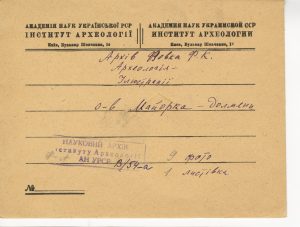 АКАДЕМІЯ НАУК УКРАЇНСЬКОЇ РСР
ІНСТИТУТ АРХЕОЛОГІЇ
Київ, Бульвар Шевченка, 14
АКАДЕМИЯ НАУК УКРАИНСКОЙ ССР
ИНСТИТУТ АРХЕОЛОГИИ
Киев, Бульвар Шевченко,
Архів Вовка Ф.К.
Археологія-
Ілюстрації
о-в Майорка - Долмени
НАУКОВИЙ АРХІВ
ституту Археології
АН УРСР
В/54-а
9 фото
1 листівка
№